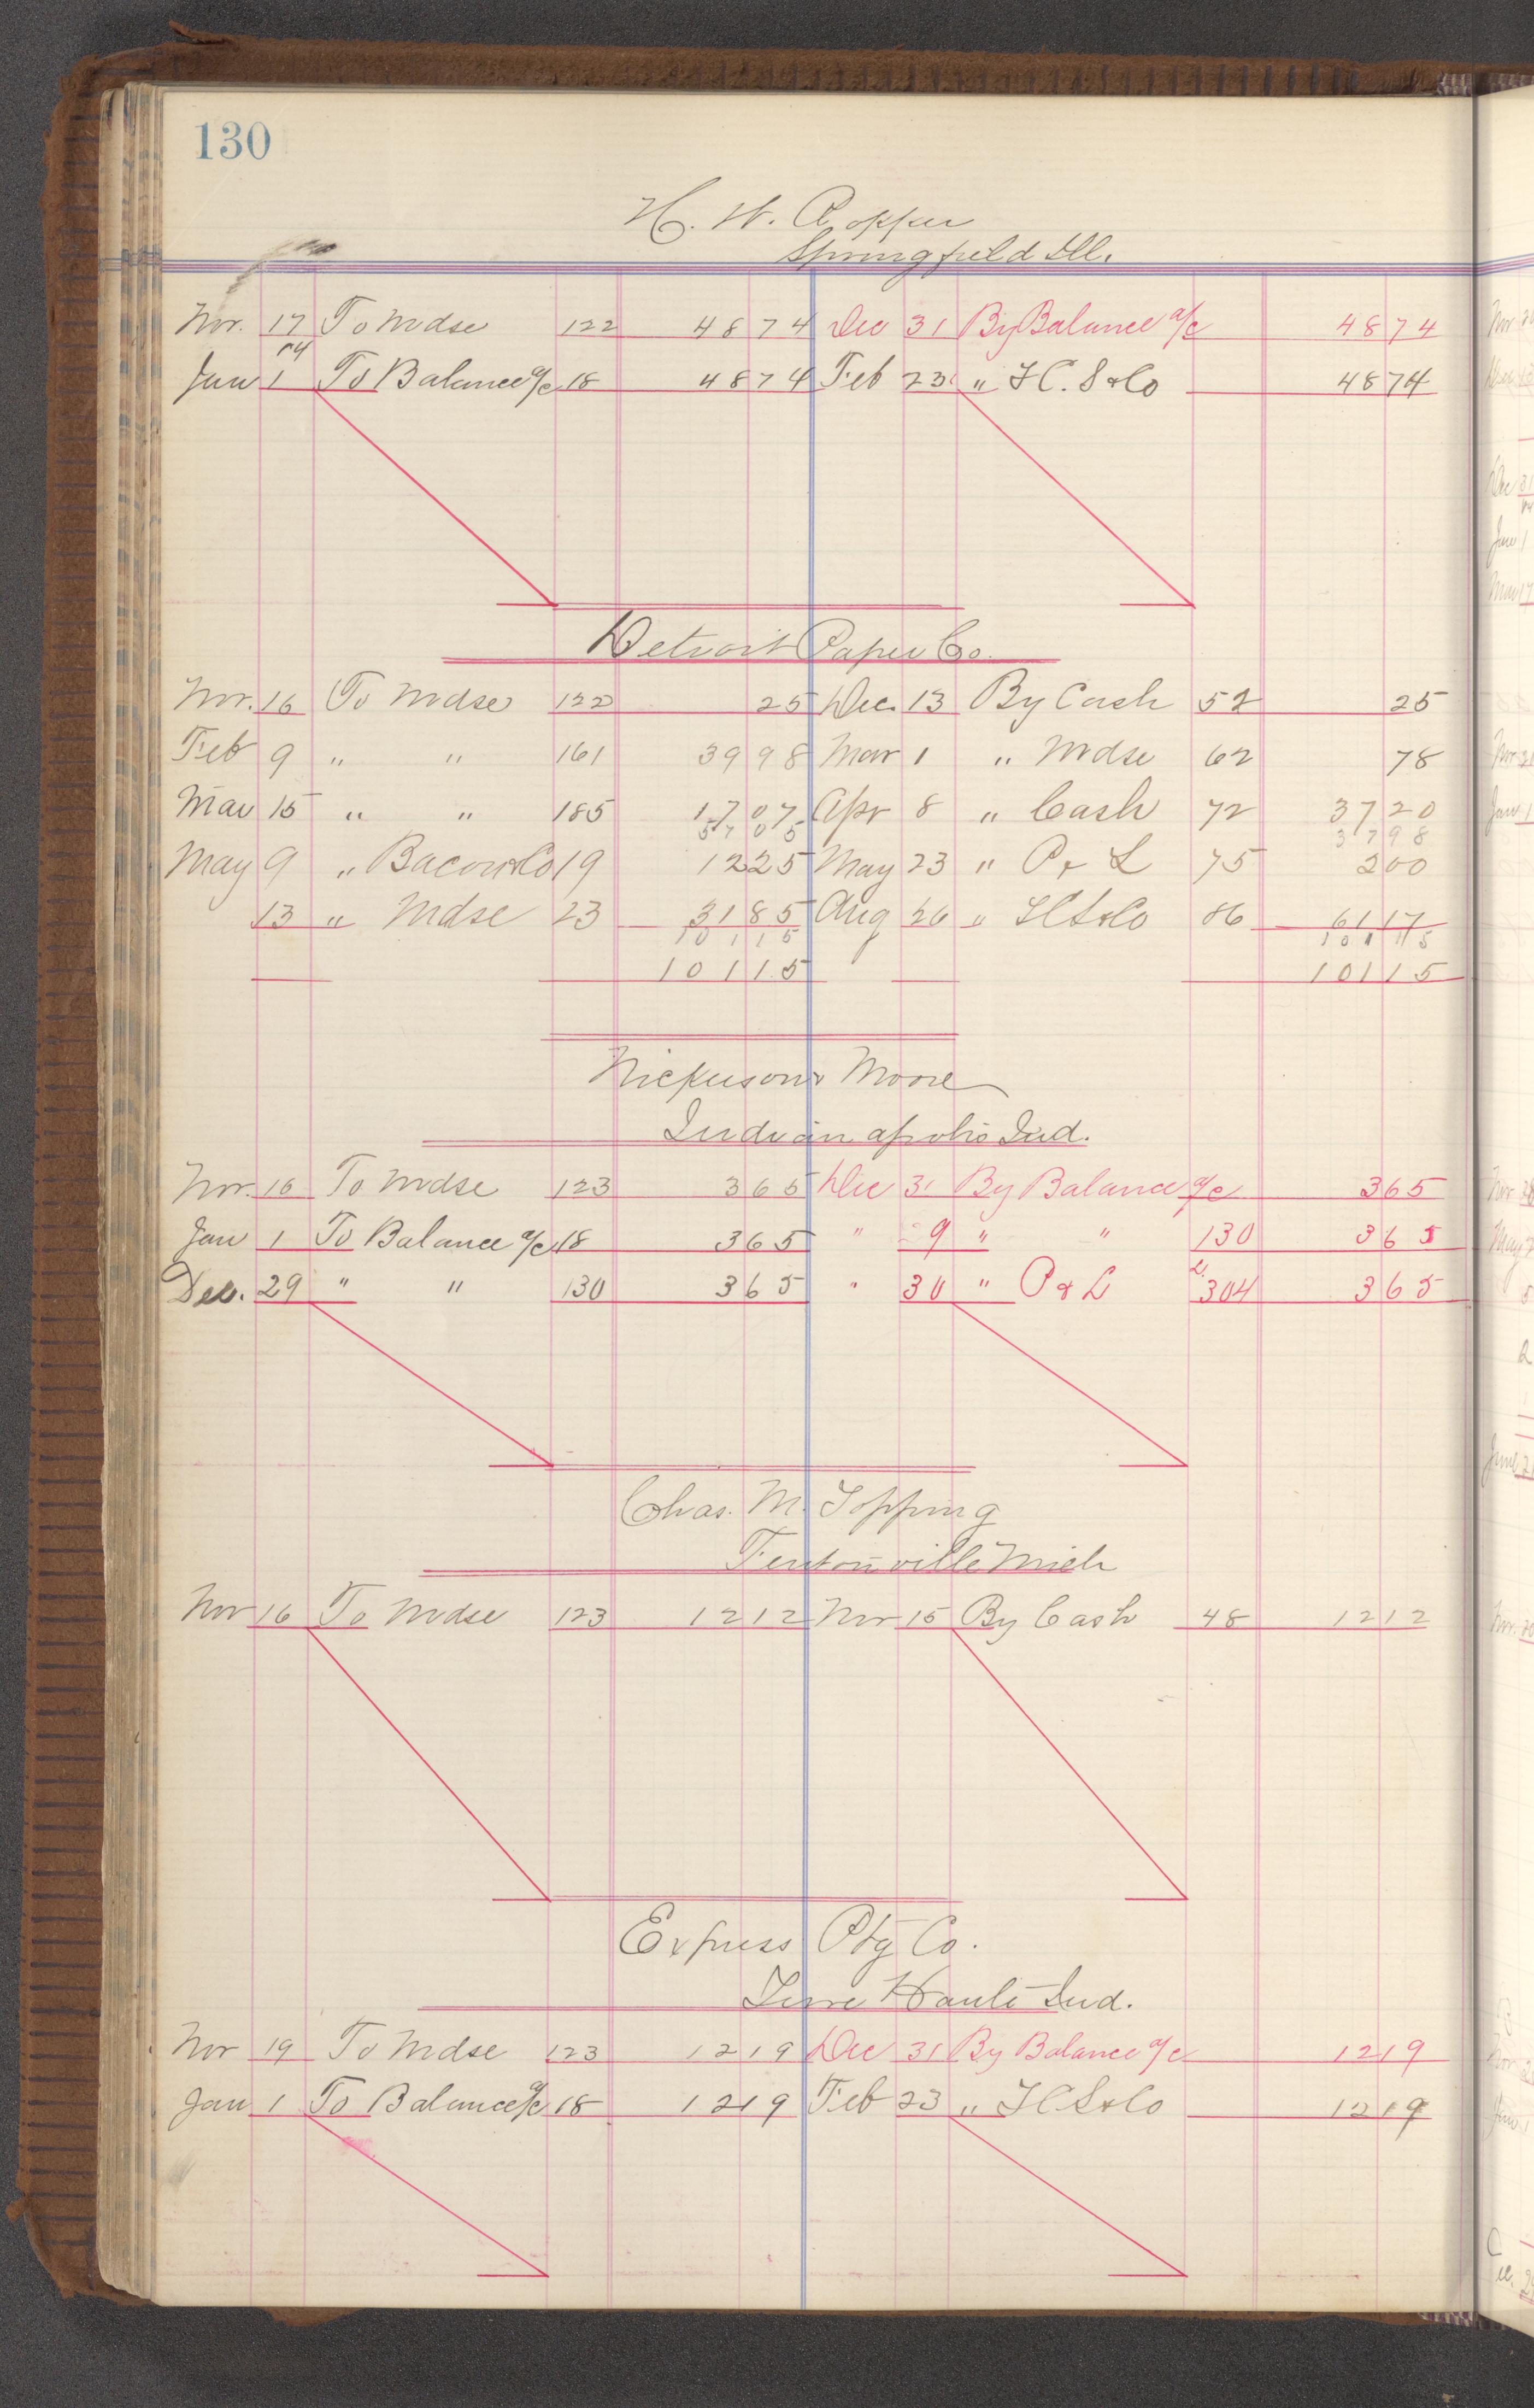 130
H. W.
Springfield Ill.
Nov. 17 To Mdse 122 48 74 Dec 31 By Balance a/c 48 74
Jan 1 To Balance a/c 18 48 74 Feb 23 " & Co 48 74
Detroit Paper Co.
Nov. 16 To Mdse 122 25 Dec. 13 By Cash 52 25
Feb 9 " " 161 39 98 Mar 1 " Mdse 62 78
Mar 15 " " 185 17 07 Apr 8 " Cash 72 37 20
57 05 37 98
May 9 " Bacon & Co 19 12 25 May 23 " P & L 75 2 00
13 " Mdse 23 31 85 Aug 26 " & Co 86 61 17
101 15 101 15
101 15 101 15
& Moore
Indianapolis Ind.
Nov. 16 To Mdse 123 3 65 Dec 31 By Balance a/c 3 65
Jan 1 To Balance a/c 18 3 65 " 9 " " 130 3 65
Dec. 29 " " 130 3 65 " 30 " P & L 304 3 65
Chas. M. Topping
Fentonville Mich
Nov 16 To Mdse 123 12 12 Nov 15 By Cash 48 12 12
Express Ptg Co.
Terre Haute Ind.
Nov 19 To Mdse 123 12 19 Dec 31 By Balance a/c 12 19
Jan 1 To Balance a/c 18 12 19 Feb 23 " & Co 12 19